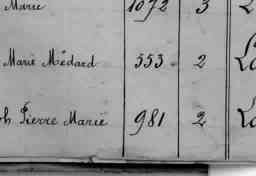 Marie 1072 3
Marie Médard 553 2
ph Pierre Marie 981 2